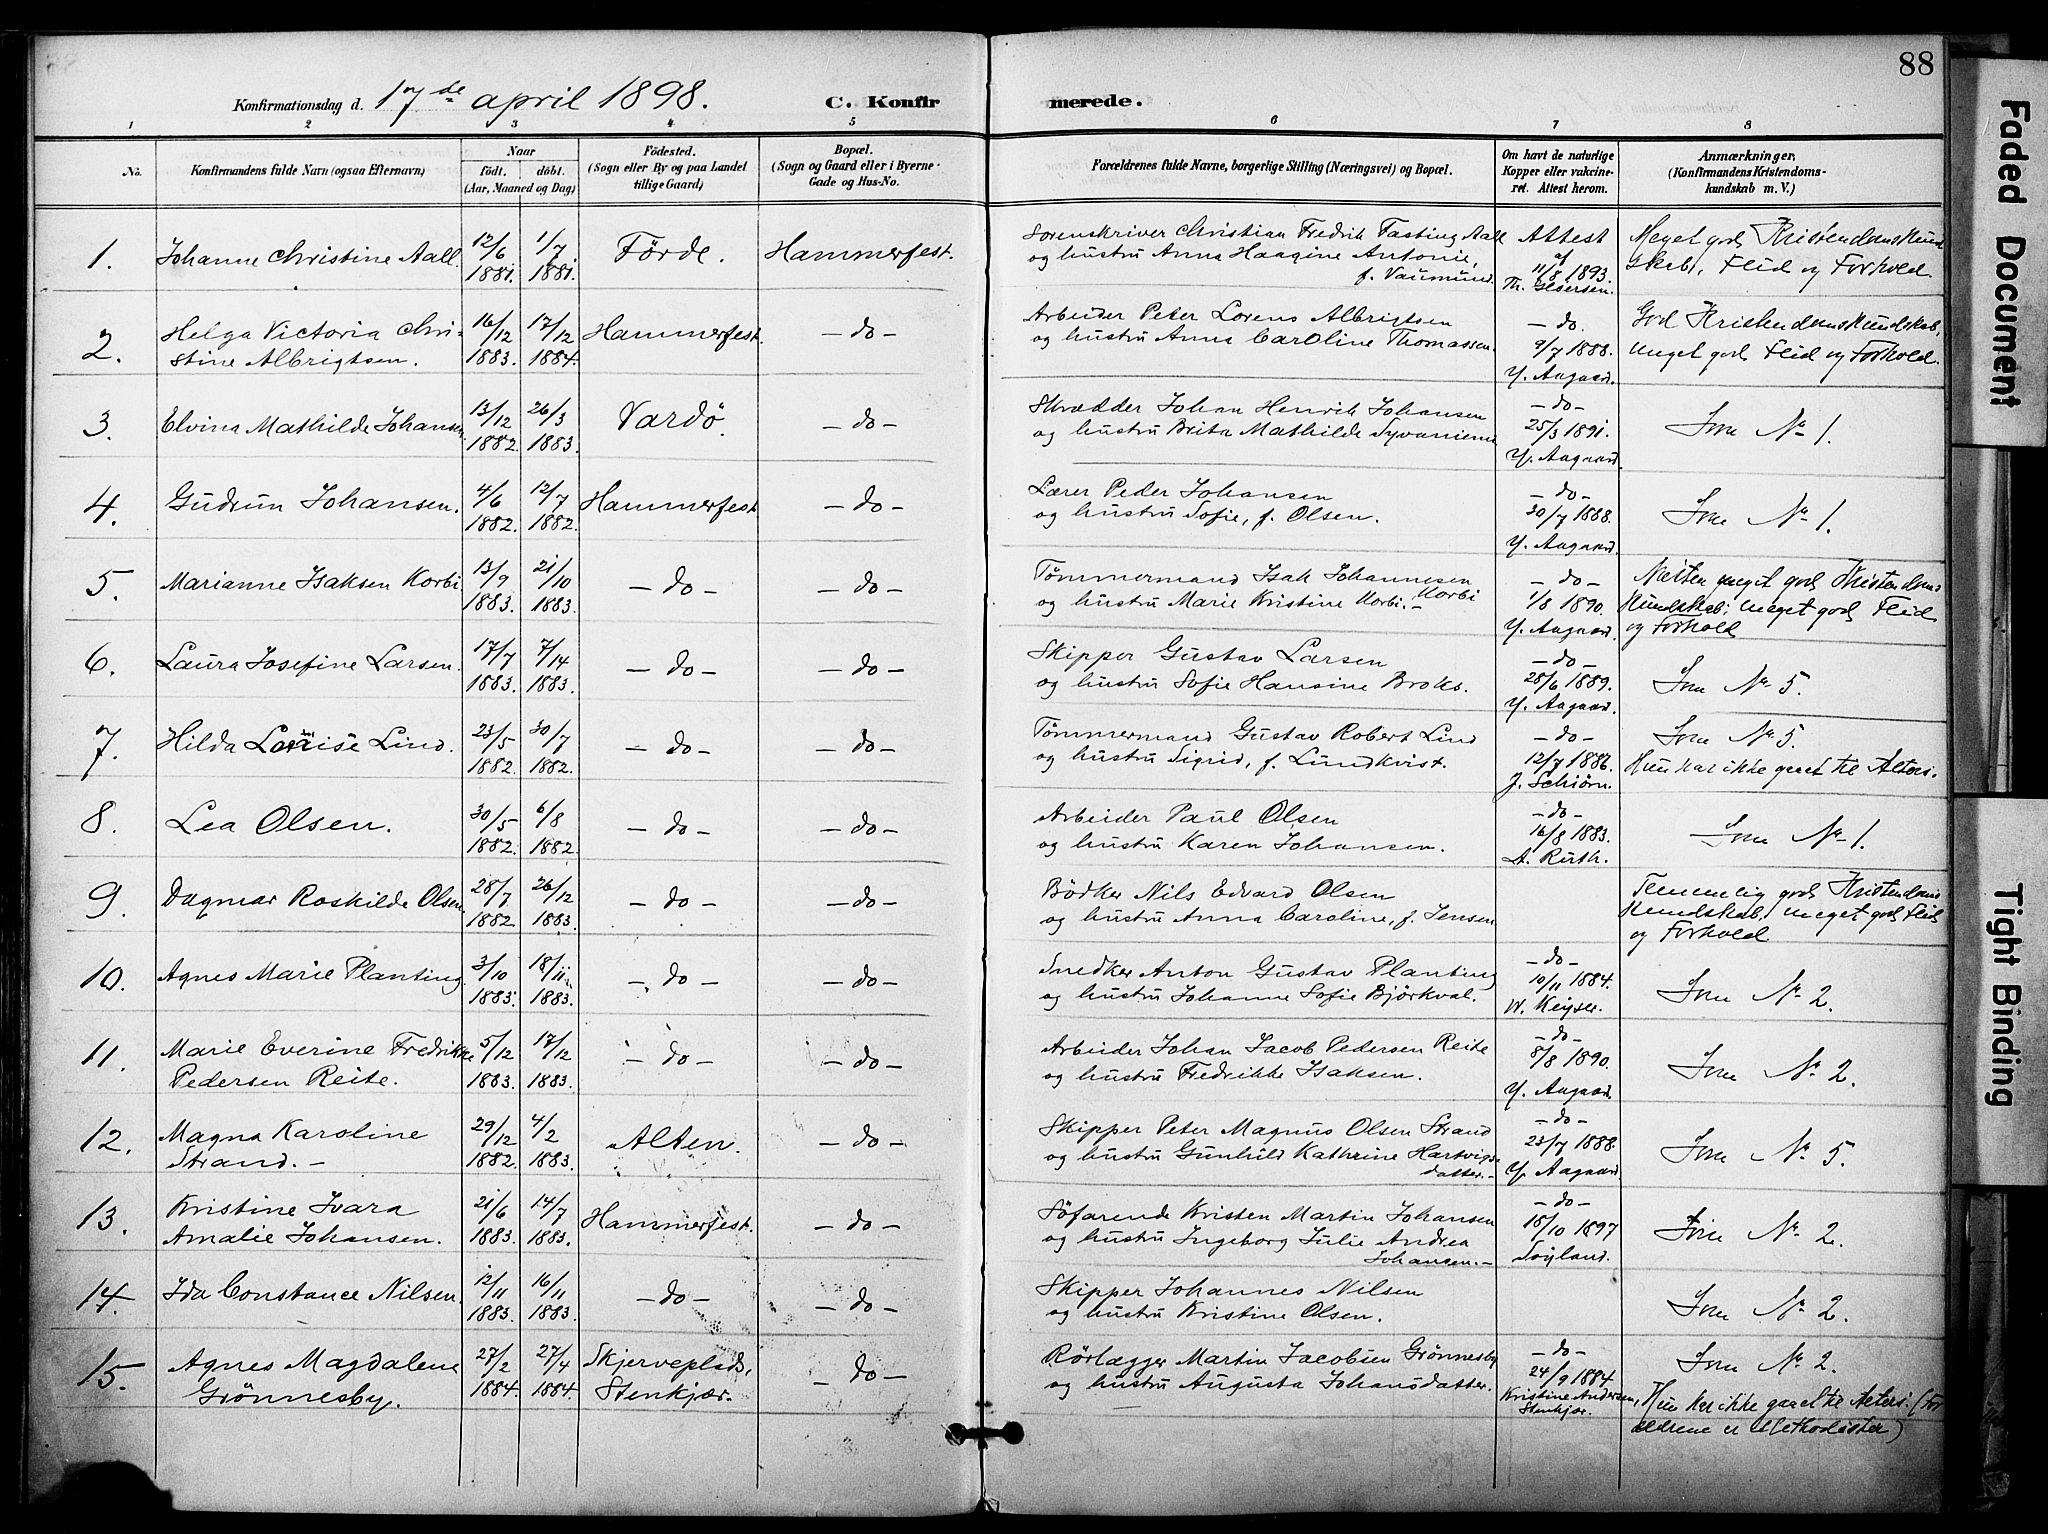 88
Konfirmationsdag d. 17de april 1898. C. Konfir merede.
1 2 3 4 5 6 7 8
No. Konfirmandens fulde Navn (ogsaa Efternavn) Naar født. døbt. (Aar, Maaned og Dag) Fødested. (Sogn eller By og paa Landet tillige Gaard) Bopæl. (Sogn og Gaard eller i Byerne Gade og Hus-No. Forældrenes fulde Navne, borgerlige Stilling (Næringsvei) og Bopæl. Om havt de naturlige Kopper eller vakcineret. Attest herom. Anmærkninger. (Konfirmandens Kristendomskundskab m. V.)
1. Johanne Christine Aall. 12/6 1881. 1/7 1881. Förde. Hammerfest. Sorenskriver Christian Fredrik Fasting Aall
og hustru Anna Haagine Antonie,
f. Vaumund. Attest af 11/8 1893. Meget god Kristendomskund
skab, Flid og Forhold.
2. Helga Victoria Chri-
stine Albrigtsen. 16/12 1883. 17/12 1884. Hammerfest. – do – Arbeider Peter Lorens Albrigtsen
og hustru Anna Caroline Thomassen. – do. 9/7 1888. Y. Aagaard. God Kristendomskundskab,
meget god Flid og Forhold.
3. Elvina Mathilde Johansen 13/12 1882. 26/3 1883. Vardö. – do – Skrædder Johan Henrik Johansen
og hustru Brita Mathilde – do – 25/3 1891. Y. Aagaard. Som No 1.
4. Gudrun Johansen. 4/6 1882. 12/7 1882. Hammerfest – do – Lærer Peder Johansen
og hustru Sofie, f. Olsen. – do – 30/7 1888. Y. Aagaard. Som No 1.
5. Marianne Isaksen Korbi 13/9 1883. 21/10 1883. – do – – do – Tömmermand Isak Johannesen Korbi
og hustru Marie Kristine Korbi. – – do – 1/8 1890. Y. Aagaard. Næsten meget god Kristendoms
kundskab; meget god Flid
og Forhold
6. Laura Josefine Larsen. 17/7 1883. 7/14 1883. – do – – do – Skipper Gustav Larsen
og hustru Sofie Hansine Broks. – do – 28/6 1889. Y. Aagaard. Som No 5.
7. Hilda Lovise Lind. 23/5 1882. 30/7 1882. – do – – do – Tömmermand Gustav Robert Lind
og hustru Sigrid, f. Lundkvist. – do – 12/7 1886. J. Schiørn. Som No 5.
Hun har ikke gaaet til Alters.
8. Lea Olsen. 30/5 1882. 6/8 1882. – do – – do – Arbeider Paul Olsen
og hustru Karen Johansen. – do – 16/8 1883. Som No 1.
9. Dagmar Roskilde Olsen 28/7 1882. 26/12 1883. – do – – do – Bödker Nils Edvard Olsen
og hustru Anna Caroline, f. Jensen Temmelig god Kristendoms
kundskab, meget god Flid
og Forhold
10. Agnes Marie Planting. 3/10 1883. 18/11 1883. – do – – do – Snedker Anton Gustav Planting
og hustru Johanne Sofie Björkval. – do – 10/11 1884. W. Keyser. Som No 2.
11. Marie Everine Fredrikke
Pedersen Reite. 5/12 1883. 17/12 1883. – do – – do – Arbeider Johan Jacob Pedersen Reite
og hustru Fredrikke Isaksen. – do – 8/8 1890. Y. Aagaard. Som No 2.
12. Magna Karoline
Strand. – 29/12 1882. 4/2 1883. Alten. – do – Skipper Peter Magnus Olsen Strand
og hustru Gunhild Kathrine Hartvigs-
datter. – – do – 23/7 1888. Y. Aagaard. Som No 5.
13. Kristine Ivara
Amalie Johansen. 21/6 1883. 14/7 1883. Hammerfest. – do – Söfarende Kristen Martin Johansen
og hustru Ingeborg Julie Andrea
Johansen. – – do – 18/10 1897 Som No 2.
14. Ida Constance Nilsen. 12/11 1883. 16/11 1883. – do – – do – Skipper Johannes Nilsen
og hustru Kristine Olsen. Som No 2.
15. Agnes Magdalene
Grönnesby. 27/2 1884. 27/4 1884. Skjerveplads,
Stenkjær. – do – Rörlægger Martin Jacobsen Grönnesby
og hustru Augusta Johansdatter. – do – 24/9 1884 Kristine Andersen, Stenkjær. Som No 2.
Hun har ikke gaaet til Alters. (For
ældrene er Methodister)
Faded Document
Tight Binding